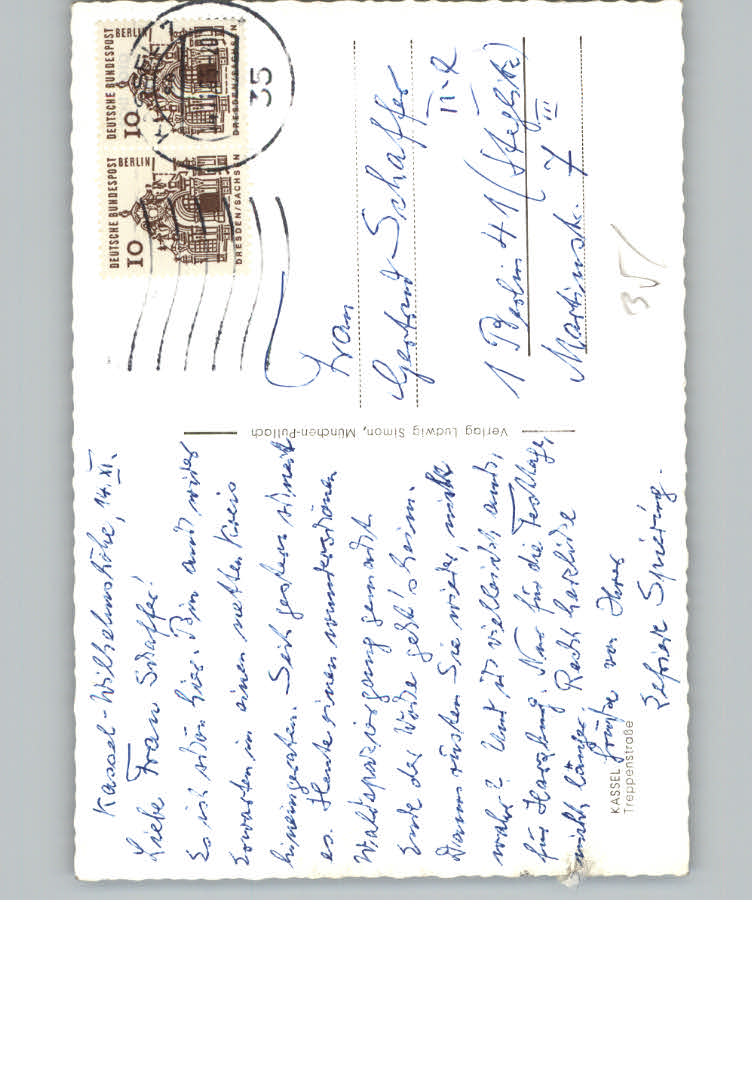 Kassel-Wilhelmshöhe, 14. XI.
Liebe Frau Schaffer!
Es ist schön hier. Bin auch wider
Erwarten in einen netten Kreis
hineingeraten. Seit gestern schneit
es. Heute einen wunderschönen
Waldspaziergang gemacht.
Ende der Woche geht's heim.
Dann rüsten Sie wieder, nicht
wahr? Und ich vielleicht auch,
für Harzburg. Nur für die Festtage,
nicht länger. Recht herzliche
Grüße von Ihrer
Spiering.
KASSEL
Treppenstraße
Verlag Ludwig Simon, München-Pullach
DEUTSCHE BUNDESPOST BERLIN
10
DRESDEN/SACHSEN
DEUTSCHE BUNDESPOST BERLIN
10
DRESDEN/SACHSEN
35
Frau
Gertrud Schaffer
II-2
1 Berlin 41 (Steglitz)
Martinstr. 7 III
35/